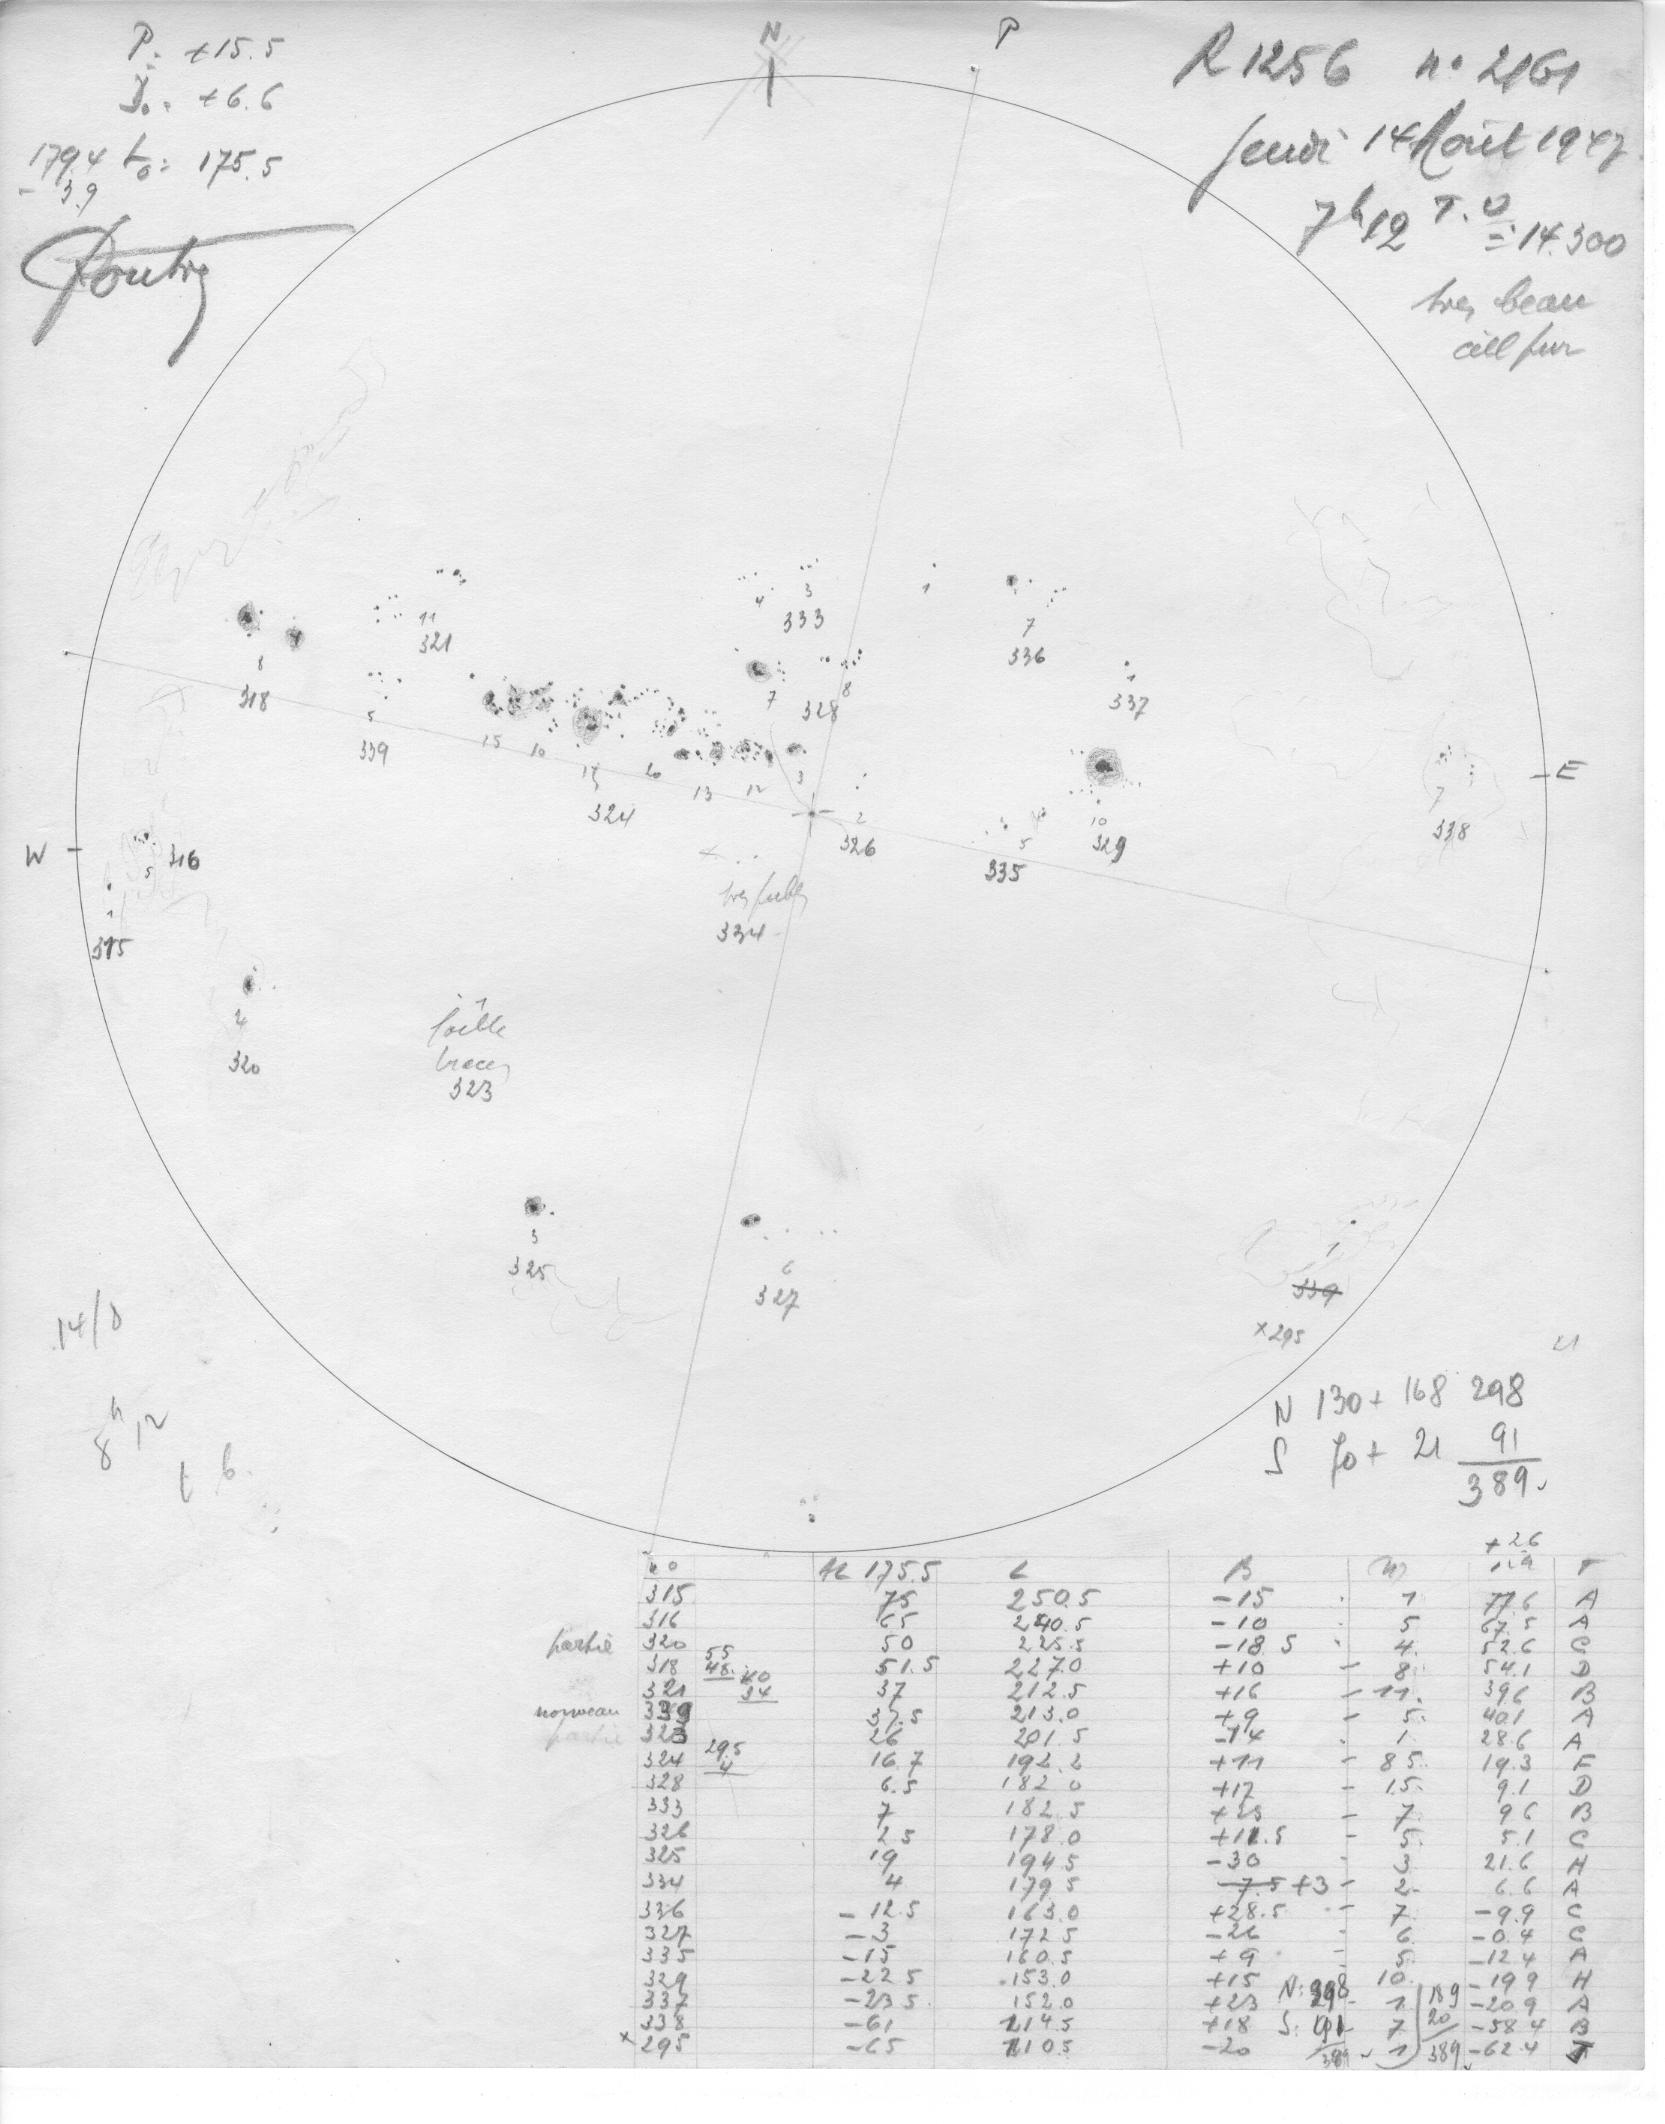 P: +15.5
+6.6
179.4 L₀: 175.5
- 3.9
N
P
R 1256 n° 2161
Jeudi 14 Août 1947
7h12 T.U
= 14.300
très beau
ciel pur
3
4
333
1
7
336
11
321
8
318
5
339
15 10 17 20 13 12 3
324
7
8
328
1
337
E
7
338
10
329
5
335
2
326
W
5 316
1
315
très faible
334
4
320
1
faible
traces
323
3
325
6
327
1
339
x 295
14/8
8h12
N 130 + 168 298
S 70 + 21 91
389
+ 2.6
n° AL 175.5 L B T
315 75 250.5 -15 1 77.6 A
316 65 240.5 -10 5 67.5 A
partie 320 50 225.5 -18.5 4 52.6 C
318 55 48 51.5 227.0 +10 - 8 54.1 D
321 40 34 37 212.5 +16 - 11 39.6 B
nouveau 339 37.5 213.0 +9 - 5 40.1 A
partie 323 26 201.5 -14 1 28.6 A
324 29.5 4 16.7 192.2 +11 - 85 19.3 F
328 6.5 182.0 +17 - 15 9.1 D
333 7 182.5 +25 - 7 9.6 B
326 2.5 178.0 +11.5 - 5 5.1 C
325 19 194.5 -30 - 3 21.6 H
334 4 179.5 -7.5 +3 - 2 6.6 A
336 -12.5 163.0 +28.5 - 7 -9.9 C
327 -3 172.5 -26 - 6 -0.4 C
335 -15 160.5 +9 - 5 -12.4 A
329 -22.5 153.0 +15 10 -19.9 H
337 -23.5 152.0 +23 - 1 -20.9 A
338 -61 114.5 +18 7 -58.4 B
x 295 -65 110.5 -20 - 1 -62.4 J
N: 298
S: 91
389
189
20
389